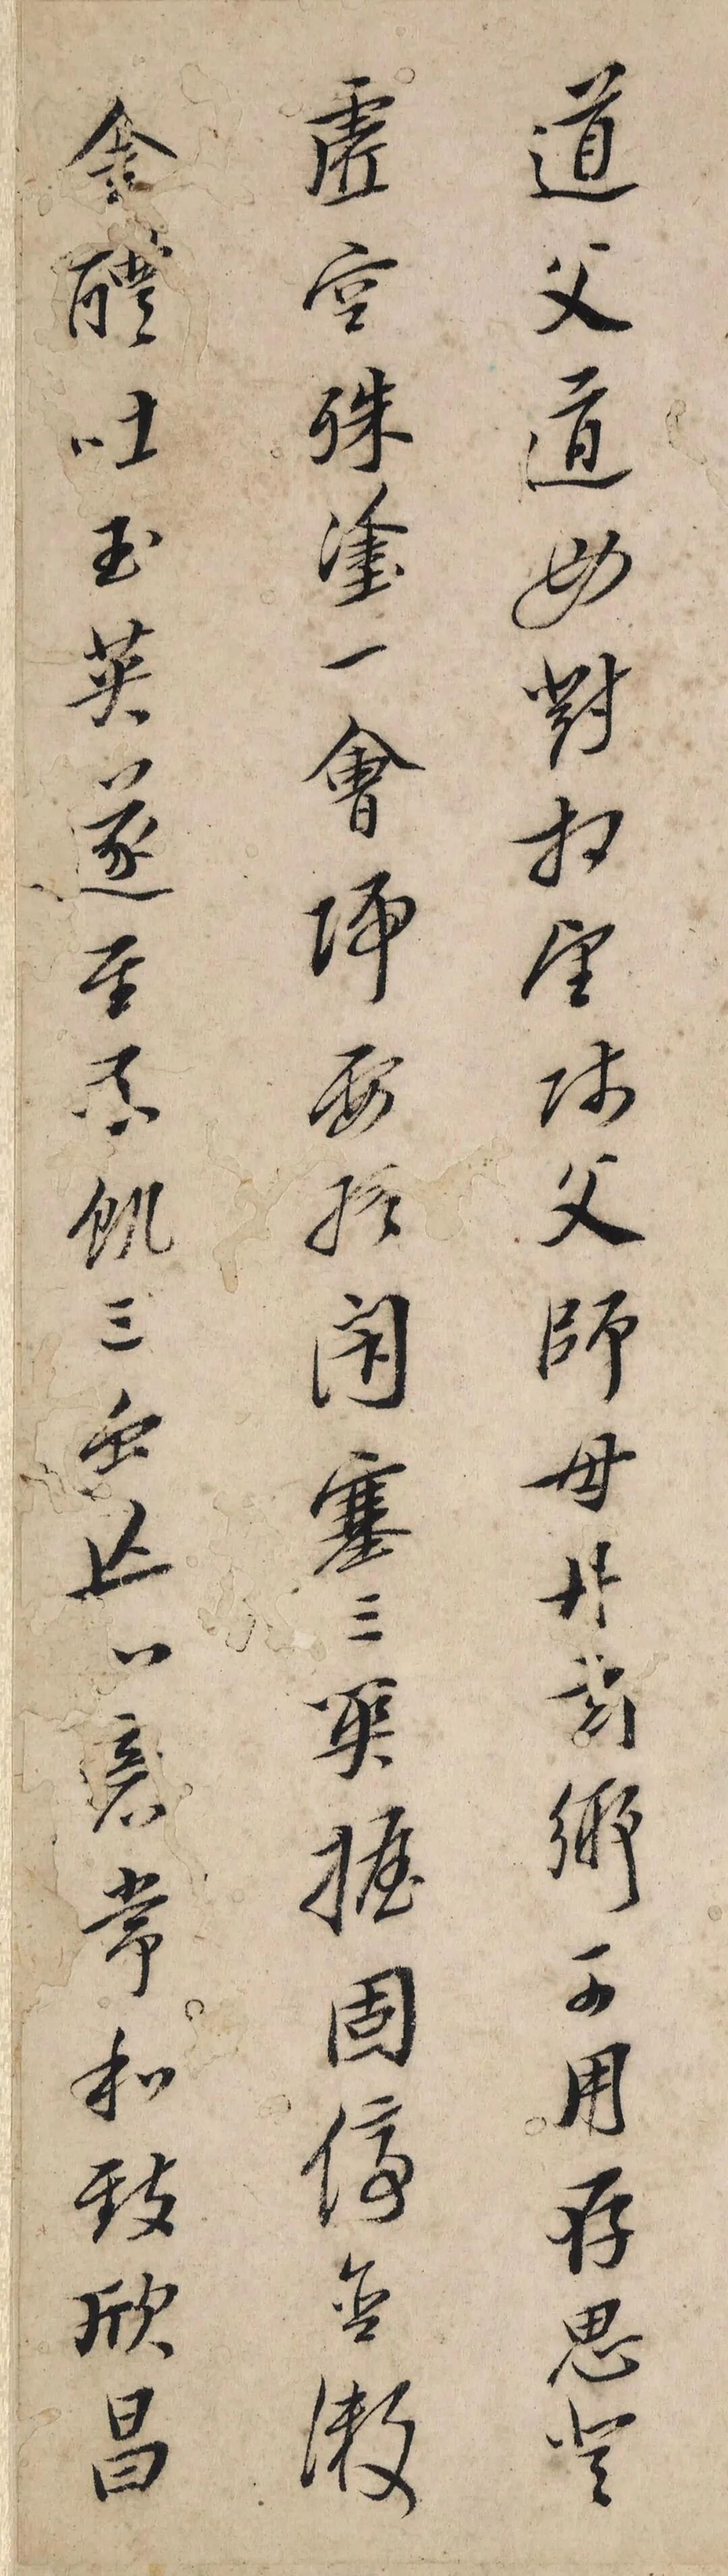 道父道母對相望師父師母丹玄鄉可用存思登
虛空殊塗一會歸要終閉塞三關握固停含漱
金醴吐玉英遂至不飢三虫亡心意常和致欣昌